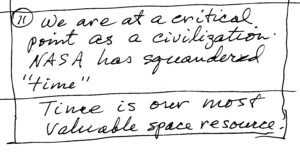 11
We are at a critical
point as a civilization.
NASA has squandered
"time"
Time is our most
valuable space resource.